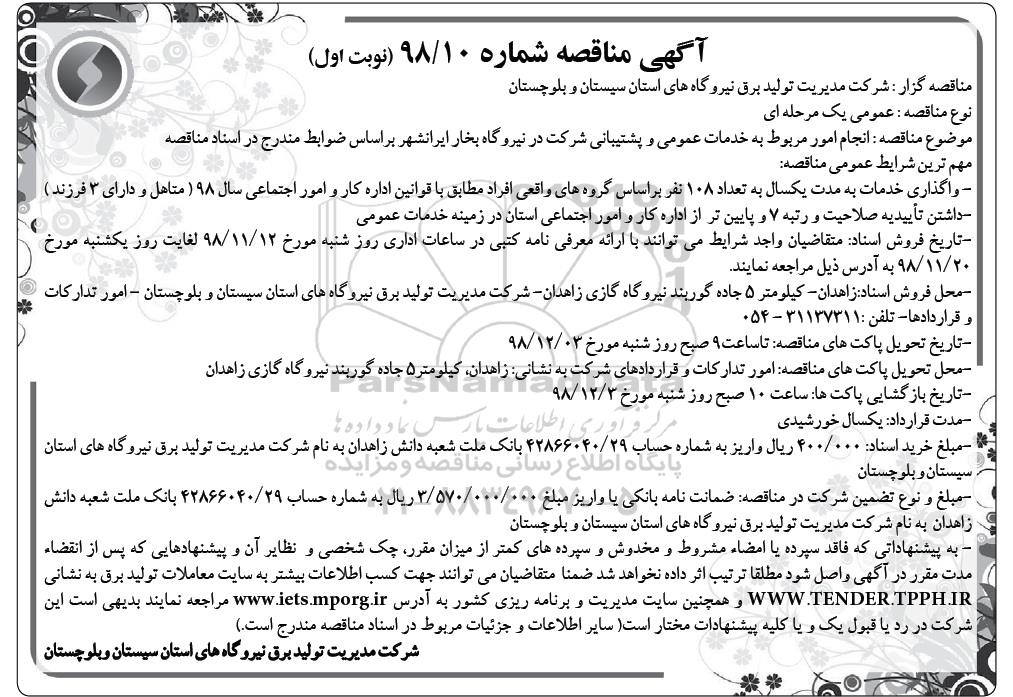 آگهی مناقصه شماره ۹۸/۱۰ (نوبت اول)
مناقصه گزار : شرکت مدیریت تولید برق نیروگاه های استان سیستان و بلوچستان
نوع مناقصه : عمومی یک مرحله ای
موضوع مناقصه : انجام امور مربوط به خدمات عمومی و پشتیبانی شرکت در نیروگاه بخار ایرانشهر براساس ضوابط مندرج در اسناد مناقصه
مهم ترین شرایط عمومی مناقصه:
- واگذاری خدمات به مدت یکسال به تعداد ۱۰۸ نفر براساس گروه های واقعی افراد مطابق با قوانین اداره کار و امور اجتماعی سال ۹۸ ( متاهل و دارای ۳ فرزند )
-داشتن تأییدیه صلاحیت و رتبه ۷ و پایین تر از اداره کار و امور اجتماعی استان در زمینه خدمات عمومی
-تاریخ فروش اسناد: متقاضیان واجد شرایط می توانند با ارائه معرفی نامه کتبی در ساعات اداری روز شنبه مورخ ۹۸/۱۱/۱۲ لغایت روز یکشنبه مورخ
۹۸/۱۱/۲۰ به آدرس ذیل مراجعه نمایند.
-محل فروش اسناد:زاهدان- کیلومتر ۵ جاده گوربند نیروگاه گازی زاهدان- شرکت مدیریت تولید برق نیروگاه های استان سیستان و بلوچستان - امور تدارکات
و قراردادها- تلفن :۳۱۱۳۷۳۱۱ - ۰۵۴
-تاریخ تحویل پاکت های مناقصه: تاساعت۹ صبح روز شنبه مورخ ۹۸/۱۲/۰۳
-محل تحویل پاکت های مناقصه: امور تدارکات و قراردادهای شرکت به نشانی: زاهدان، کیلومتر۵ جاده گوربند نیروگاه گازی زاهدان
-تاریخ بازگشایی پاکت ها: ساعت ۱۰ صبح روز شنبه مورخ ۹۸/۱۲/۳
-مدت قرارداد: یکسال خورشیدی
-مبلغ خرید اسناد: ۴۰۰/۰۰۰ ریال واریز به شماره حساب ۴۲۸۶۶۰۴۰/۲۹ بانک ملت شعبه دانش زاهدان به نام شرکت مدیریت تولید برق نیروگاه های استان
سیستان و بلوچستان
-مبلغ و نوع تضمین شرکت در مناقصه: ضمانت نامه بانکی یا واریز مبلغ ۳/۵۷۰/۰۰۰/۰۰۰ ریال به شماره حساب ۴۲۸۶۶۰۴۰/۲۹ بانک ملت شعبه دانش
زاهدان به نام شرکت مدیریت تولید برق نیروگاه های استان سیستان و بلوچستان
- به پیشنهاداتی که فاقد سپرده یا امضاء مشروط و مخدوش و سپرده های کمتر از میزان مقرر، چک شخصی و نظایر آن و پیشنهادهایی که پس از انقضاء
مدت مقرر در آگهی واصل شود مطلقا ترتیب اثر داده نخواهد شد ضمنا متقاضیان می توانند جهت کسب اطلاعات بیشتر به سایت معاملات تولید برق به نشانی
WWW.TENDER.TPPH.IR و همچنین سایت مدیریت و برنامه ریزی کشور به آدرس www.iets.mporg.ir مراجعه نمایند بدیهی است این
شرکت در رد یا قبول یک و یا کلیه پیشنهادات مختار است( سایر اطلاعات و جزئیات مربوط در اسناد مناقصه مندرج است.)
شرکت مدیریت تولید برق نیروگاه های استان سیستان وبلوچستان
ParsNamadData
مرکز فرآوری اطلاعات پارس نماد داده ها
پایگاه اطلاع رسانی مناقصه و مزایده